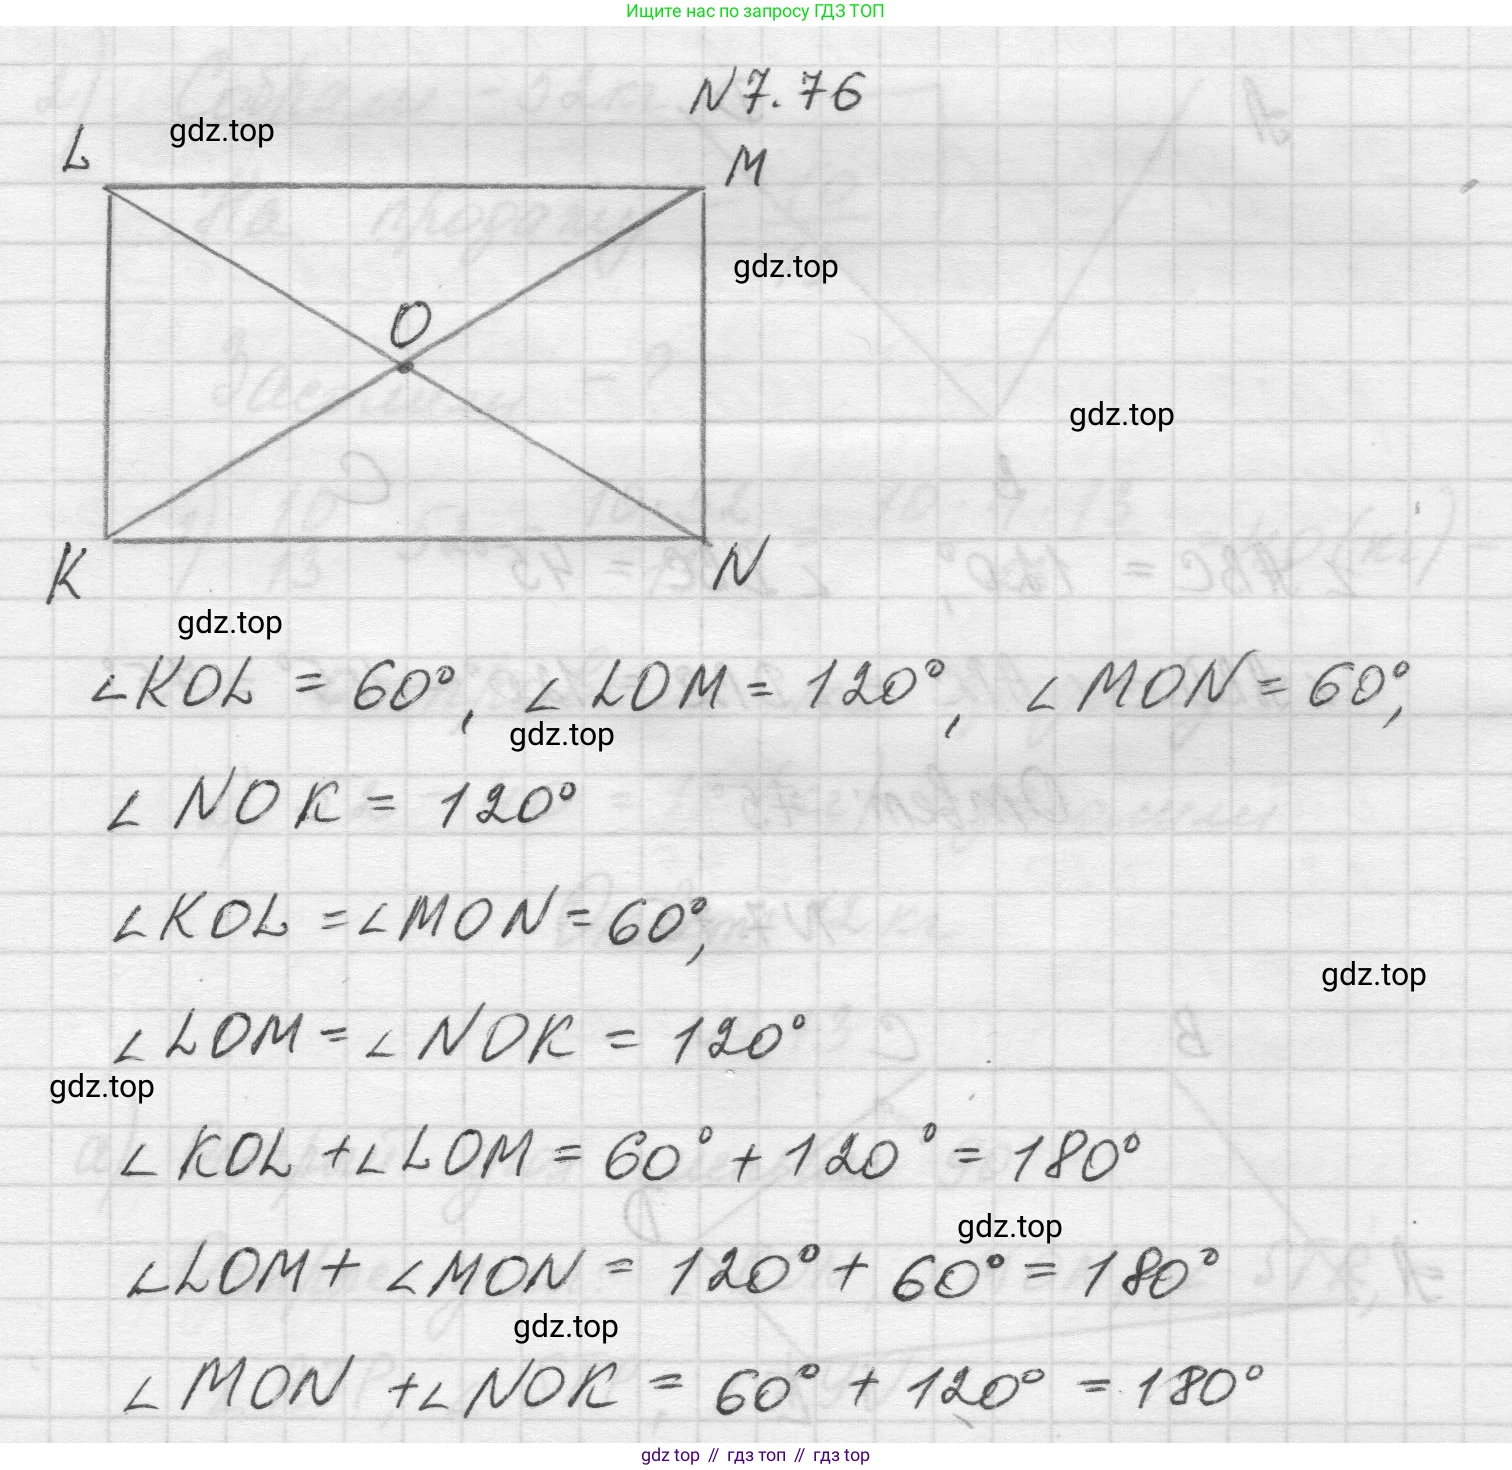 Ищите нас по запросу ГДЗ ТОП
N7.76
L
gdz.top
M
gdz.top
O
gdz.top
K
N
gdz.top
∠KOL = 60°, ∠LOM = 120°, ∠MON = 60°,
gdz.top
∠NOK = 120°
∠KOL = ∠MON = 60°,
gdz.top
∠LOM = ∠NOK = 120°
gdz.top
∠KOL + ∠LOM = 60° + 120° = 180°
gdz.top
∠LOM + ∠MON = 120° + 60° = 180°
gdz.top
∠MON + ∠NOK = 60° + 120° = 180°
gdz top // гдз топ // гдз top